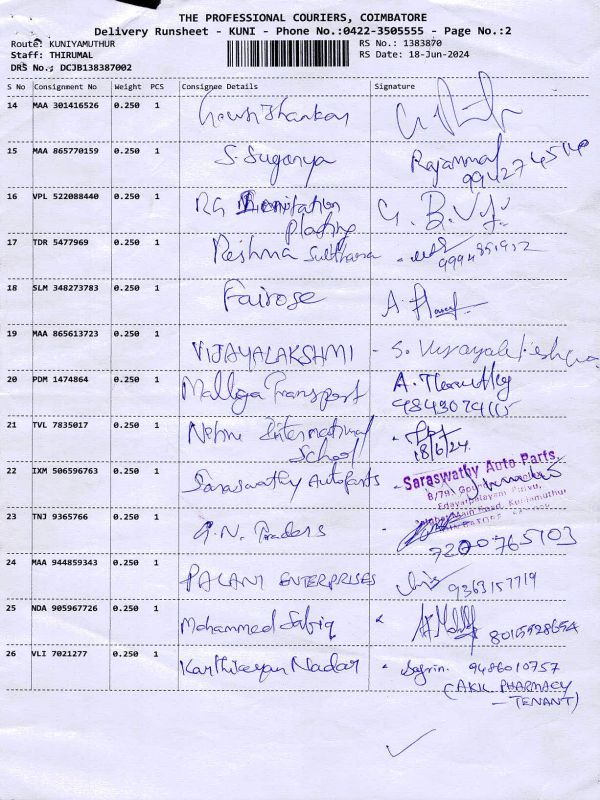 THE PROFESSIONAL COURIERS, COIMBATORE
Delivery Runsheet - KUNI - Phone No.:0422-3505555 - Page No.:2
Route: KUNIYAMUTHUR RS No.: 1383870
Staff: THIRUMAL RS Date: 18-Jun-2024
DRS No.: DCJB138387002
S No Consignment No Weight PCS Consignee Details Signature
14 MAA 301416526 0.250 1
15 MAA 865770159 0.250 1 S. Suganya Rajammal
16 VPL 522088440 0.250 1 RG Imitation
Plating
17 TDR 5477969 0.250 1 Reshma Sulthana
18 SLM 348273783 0.250 1 Fairose A.
19 MAA 865613723 0.250 1 VIJAYALAKSHMI S.
20 PDM 1474864 0.250 1 Transport A.
21 TVL 7835017 0.250 1 Nehru International
School 18/6/24
22 IXM 506596763 0.250 1 Saraswathy Autoparts Saraswathy Auto Parts,
8/79
Edayarpalayam Pirivu,
Main Road, Kuniamuthur
23 TNJ 9365766 0.250 1 G.N. Traders
7200765103
24 MAA 944859343 0.250 1 PALANI ENTERPRISES 9363157719
25 NDA 905967726 0.250 1 Mohammed Sabiq
26 VLI 7021277 0.250 1 Karthikeyan Nadar 9486010757
(AKIL PHARMACY
- TENANT)